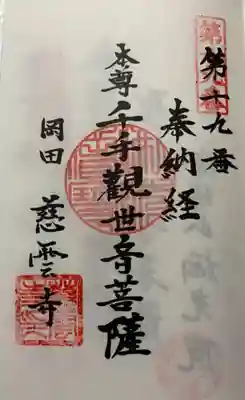 第十九番
奉納経
本尊 千手觀世音菩薩
岡田 慈雲寺